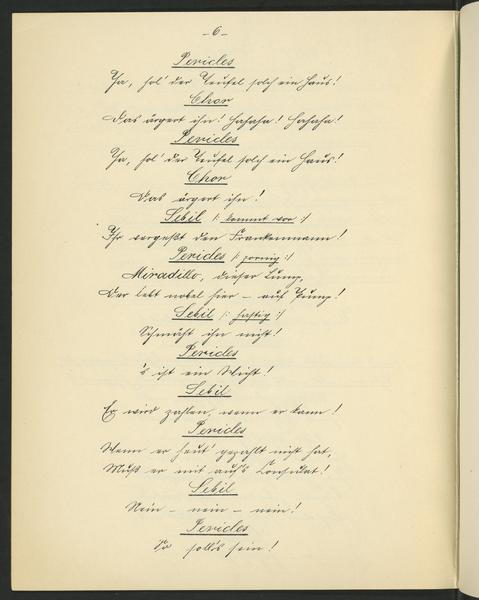 -6-
Pericles
Ja, hol' der Teufel solch ein Haus!
Chor
Das ärgert ihn! Hahaha! Hahaha!
Pericles
Ja, hol' der Teufel solch ein Haus!
Chor
Das ärgert ihn!
Sebil /: kommt vor :/
Ihr vergeßt den Frankenmann!
Pericles /: zornig :/
Miradillo, dieser Lump,
Der lebt nobel hier – auf Pump!
Sebil /: hastig :/
Schmäht ihn nicht!
Pericles
's ist ein Wicht!
Sebil
Er wird zahlen, wenn er kann!
Pericles
Wenn er heut' gezahlt nicht hat,
Muß er mit auf's Consulat!
Sebil
Nein – nein – nein!
Pericles
So soll's sein!